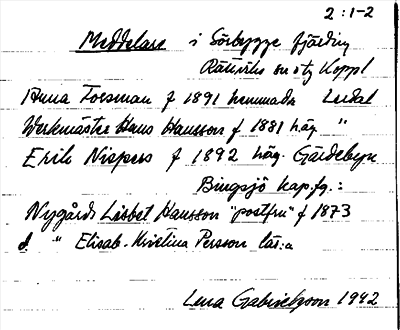 2:1-2
Meddelare i Sörbygge fjärding
Rättviks sn o tg Koppl
Anna Forsman f 1891 hemmadr Lerdal
Werkmästre Hans Hansson f 1881 häg "
Erik Nispers f 1892 häg. Gärdebyn
Bingsjö kap.fg.:
Nygårds Lisbet Hansson "postfru" f 1873
d " Elisab. Kristina Persson lär:a
Lena Gabrielsson 1942